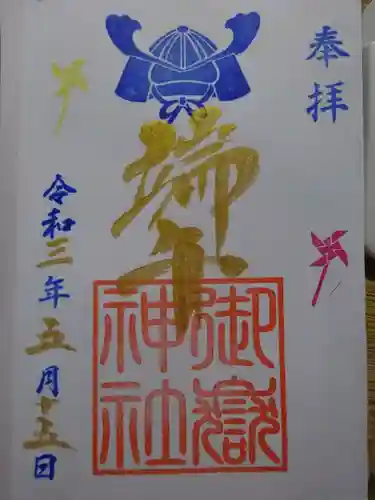 奉拝
端午
御嶽
神社
令和三年五月十五日